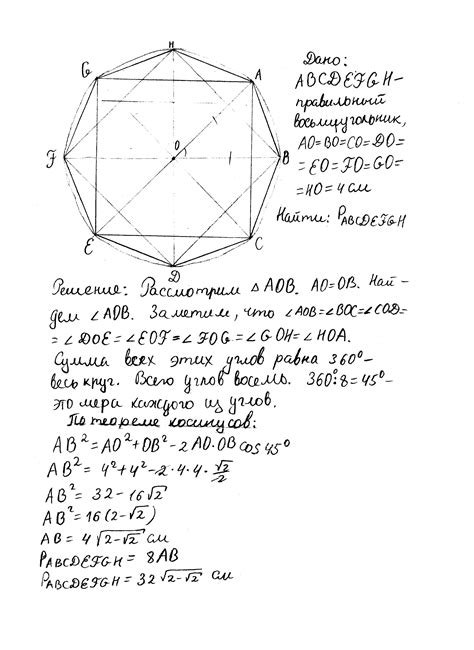 H
G
A
O
F
B
E
C
D
Дано:
ABCDEFGH-
правильный
восьмиугольник,
AO=BO=CO=DO=
=EO=FO=GO=
=HO=4см
Найти: PABCDEFGH
Решение: Рассмотрим △AOB. AO=OB. Най-
дем ∠AOB. Заметим, что ∠AOB=∠BOC=∠COD=
=∠DOE=∠EOF=∠FOG=∠GOH=∠HOA.
Сумма всех этих углов равна 360°-
весь круг. Всего углов восемь. 360°:8=45°-
это мера каждого из углов.
По теореме косинусов:
AB²=AO²+OB²-2AO·OB cos45°
AB²=4²+4²-2·4·4·√2/2
AB²=32-16√2
AB²=16(2-√2)
AB=4√(2-√2) см
PABCDEFGH=8AB
PABCDEFGH=32√(2-√2) см